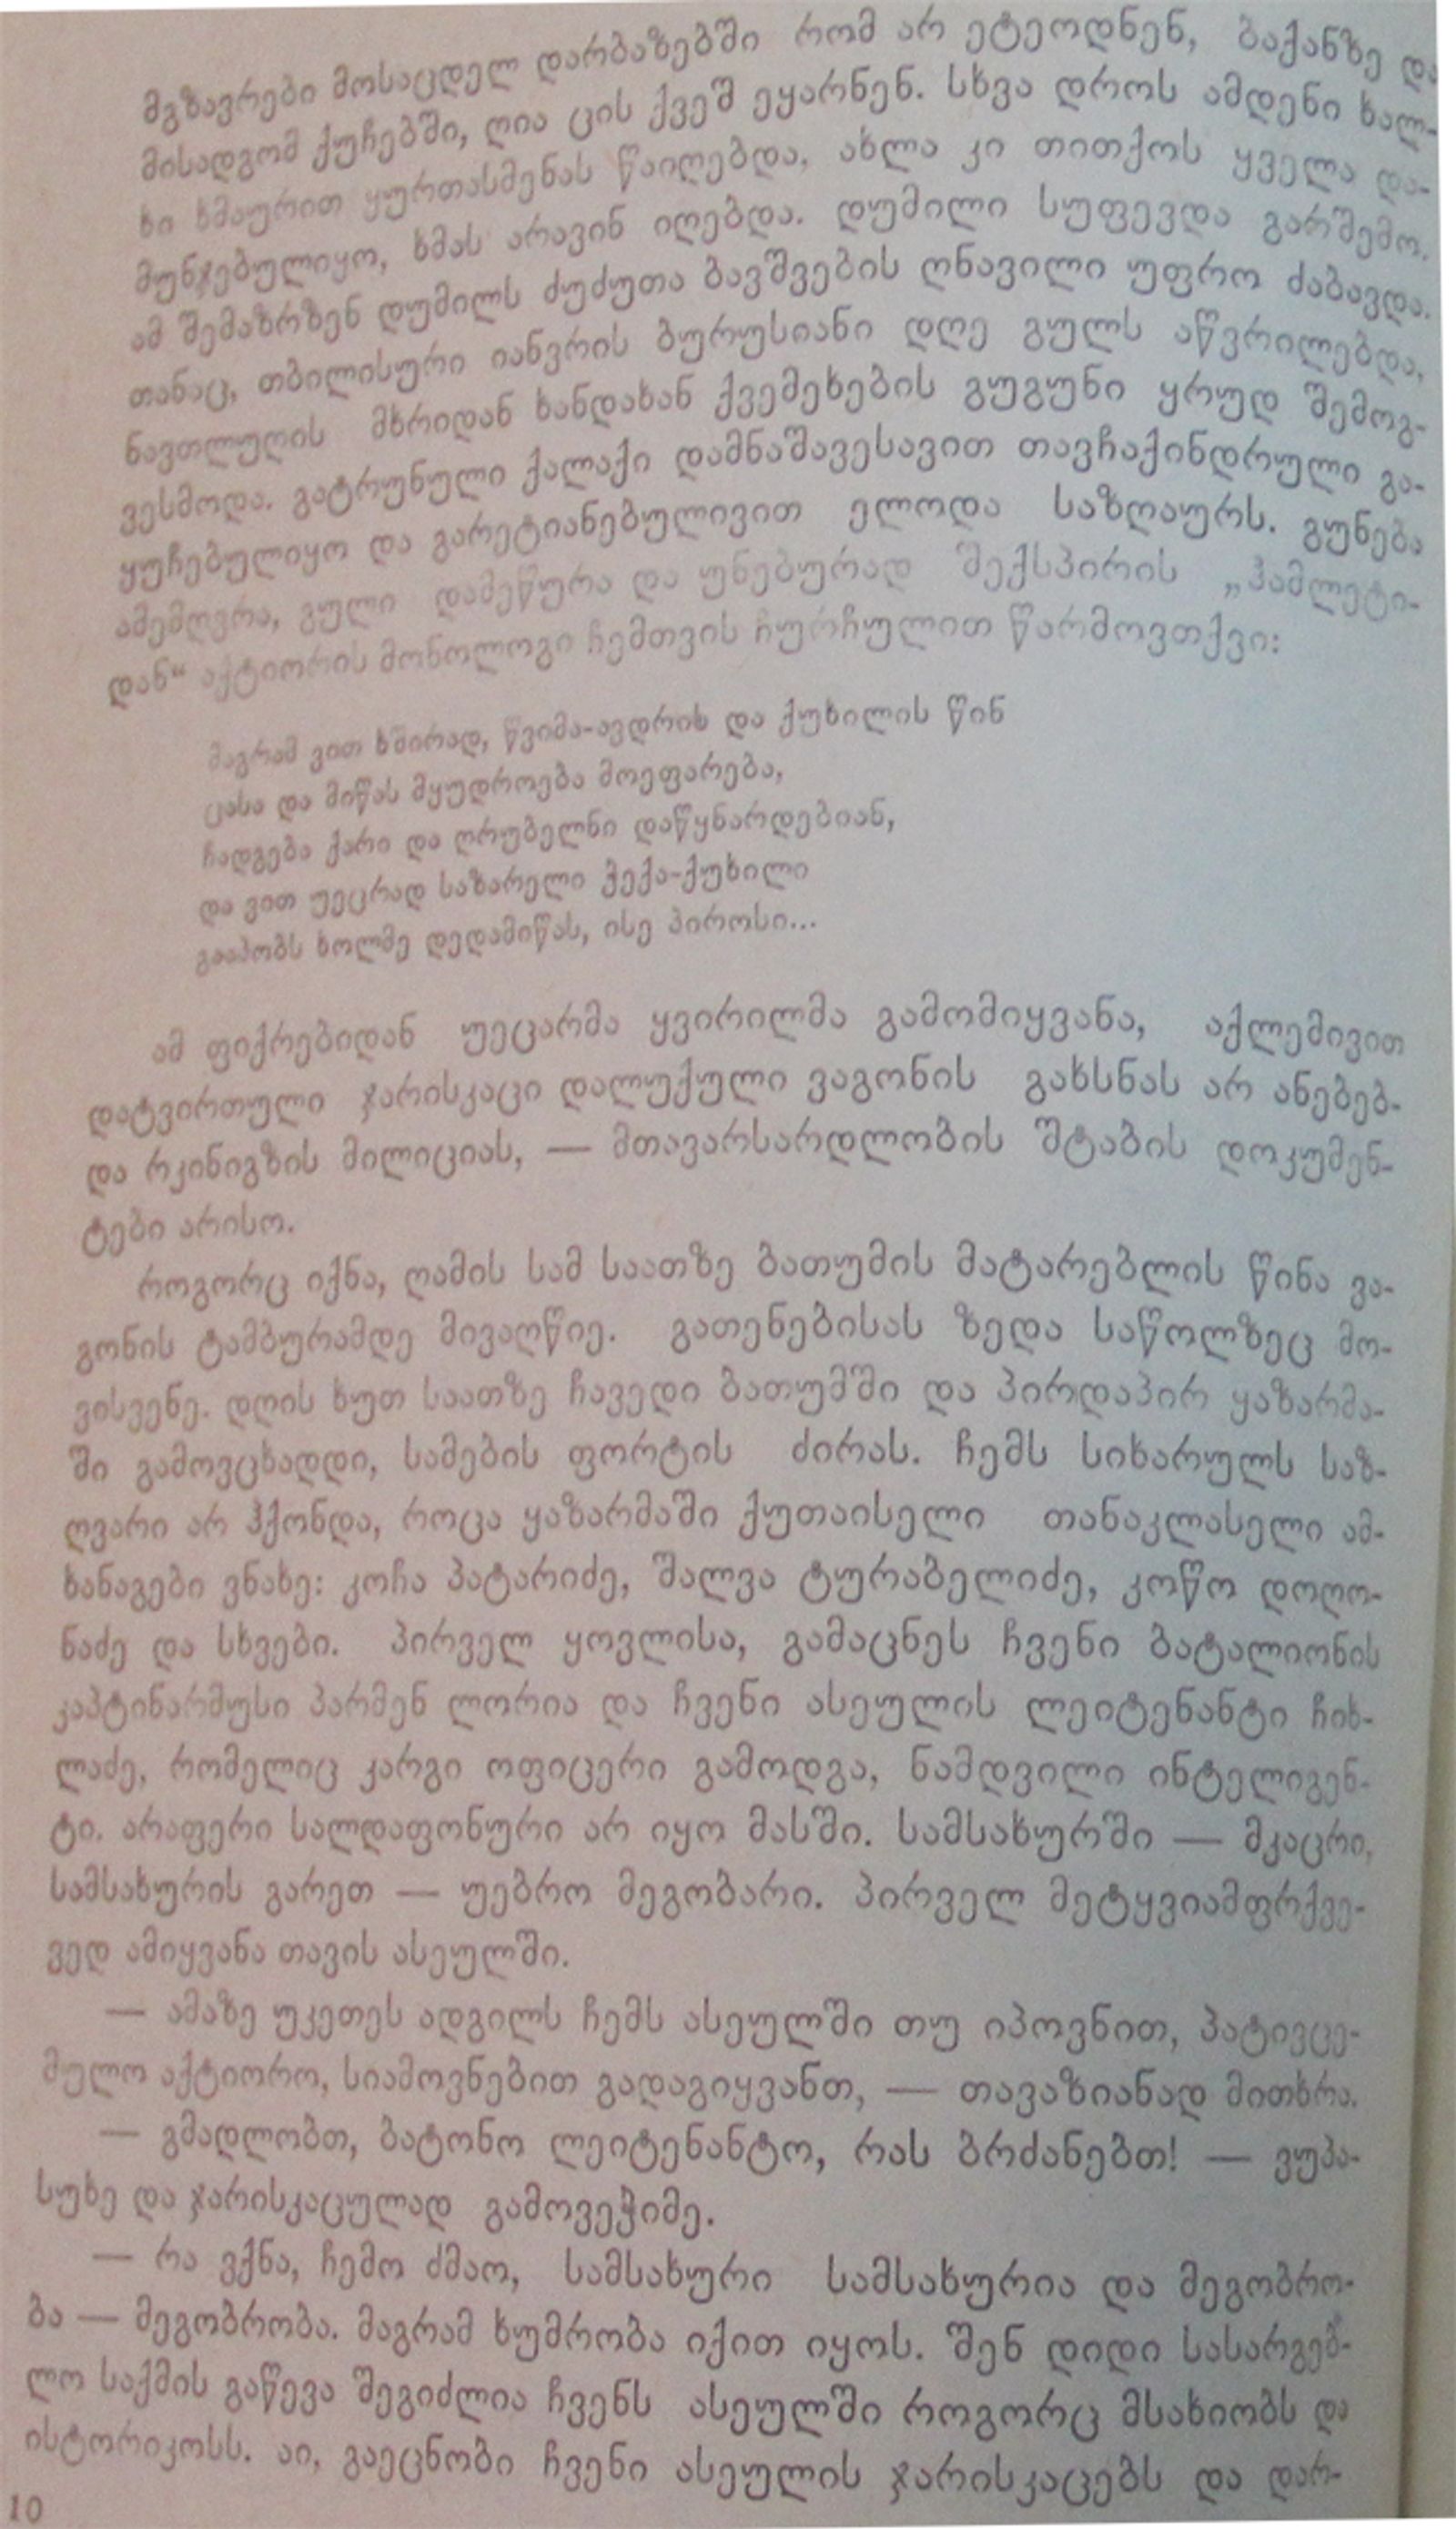 მგზავრები მოსაცდელ დარბაზებში რომ არ ეტეოდნენ, ბაქანზე და
მისადგომ ქუჩებში, ღია ცის ქვეშ ეყარნენ. სხვა დროს ამდენი ხალ-
ხი ხმაურით ყურთასმენას წაიღებდა, ახლა კი თითქოს ყველა და-
მუნჯებულიყო, ხმას არავინ იღებდა. დუმილი სუფევდა გარშემო.
ამ შემაზრზენ დუმილს ძუძუთა ბავშვების ღნავილი უფრო ძაბავდა.
თანაც, თბილისური იანვრის ბურუსიანი დღე გულს აწვრილებდა,
ნავთლუღის მხრიდან ხანდახან ქვემეხების გუგუნი ყრუდ შემოგ-
ვესმოდა. გატრუნული ქალაქი დამნაშავესავით თავჩაქინდრული გა-
ყუჩებულიყო და გარეტიანებულივით ელოდა საზღაურს. გუნება
ამემღვრა, გული დამეწურა და უნებურად შექსპირის „ჰამლეტი-
დან“ აქტიორის მონოლოგი ჩემთვის ჩურჩულით წარმოვთქვი:
მაგრამ ვით ხშირად, წვიმა-ავდრის და ქუხილის წინ
ცასა და მიწას მყუდროება მოეფარება,
ჩადგება ქარი და ღრუბელნი დაწყნარდებიან,
და ვით უეცრად საზარელი ჭექა-ქუხილი
გააპობს ხოლმე დედამიწას, ისე პიროსი...
ამ ფიქრებიდან უეცარმა ყვირილმა გამომიყვანა, აქლემივით
დატვირთული ჯარისკაცი დალუქული ვაგონის გახსნას არ ანებებ-
და რკინიგზის მილიციას, — მთავარსარდლობის შტაბის დოკუმენ-
ტები არისო.
როგორც იქნა, ღამის სამ საათზე ბათუმის მატარებლის წინა ვა-
გონის ტამბურამდე მივაღწიე. გათენებისას ზედა საწოლზეც მო-
ვისვენე. დღის ხუთ საათზე ჩავედი ბათუმში და პირდაპირ ყაზარმა-
ში გამოვცხადდი, სამების ფორტის ძირას. ჩემს სიხარულს საზ-
ღვარი არ ჰქონდა, როცა ყაზარმაში ქუთაისელი თანაკლასელი ამ-
ხანაგები ვნახე: კოჩა პატარიძე, შალვა ტურაბელიძე, კოწო დოღო-
ნაძე და სხვები. პირველ ყოვლისა, გამაცნეს ჩვენი ბატალიონის
კაპტინარმუსი პარმენ ლორია და ჩვენი ასეულის ლეიტენანტი ჩიხ-
ლაძე, რომელიც კარგი ოფიცერი გამოდგა, ნამდვილი ინტელიგენ-
ტი. არაფერი სალდაფონური არ იყო მასში. სამსახურში — მკაცრი,
სამსახურის გარეთ — უებრო მეგობარი. პირველ მეტყვიამფრქვე-
ვედ ამიყვანა თავის ასეულში.
— ამაზე უკეთეს ადგილს ჩემს ასეულში თუ იპოვნით, პატივცე-
მულო აქტიორო, სიამოვნებით გადაგიყვანთ, — თავაზიანად მითხრა.
— გმადლობთ, ბატონო ლეიტენანტო, რას ბრძანებთ! — ვუპა-
სუხე და ჯარისკაცულად გამოვეჭიმე.
— რა ვქნა, ჩემო ძმაო, სამსახური სამსახურია და მეგობრო-
ბა — მეგობრობა. მაგრამ ხუმრობა იქით იყოს. შენ დიდი სასარგებ-
ლო საქმის გაწევა შეგიძლია ჩვენს ასეულში როგორც მსახიობს და
ისტორიკოსს. აი, გაეცნობი ჩვენი ასეულის ჯარისკაცებს და დარ-
10